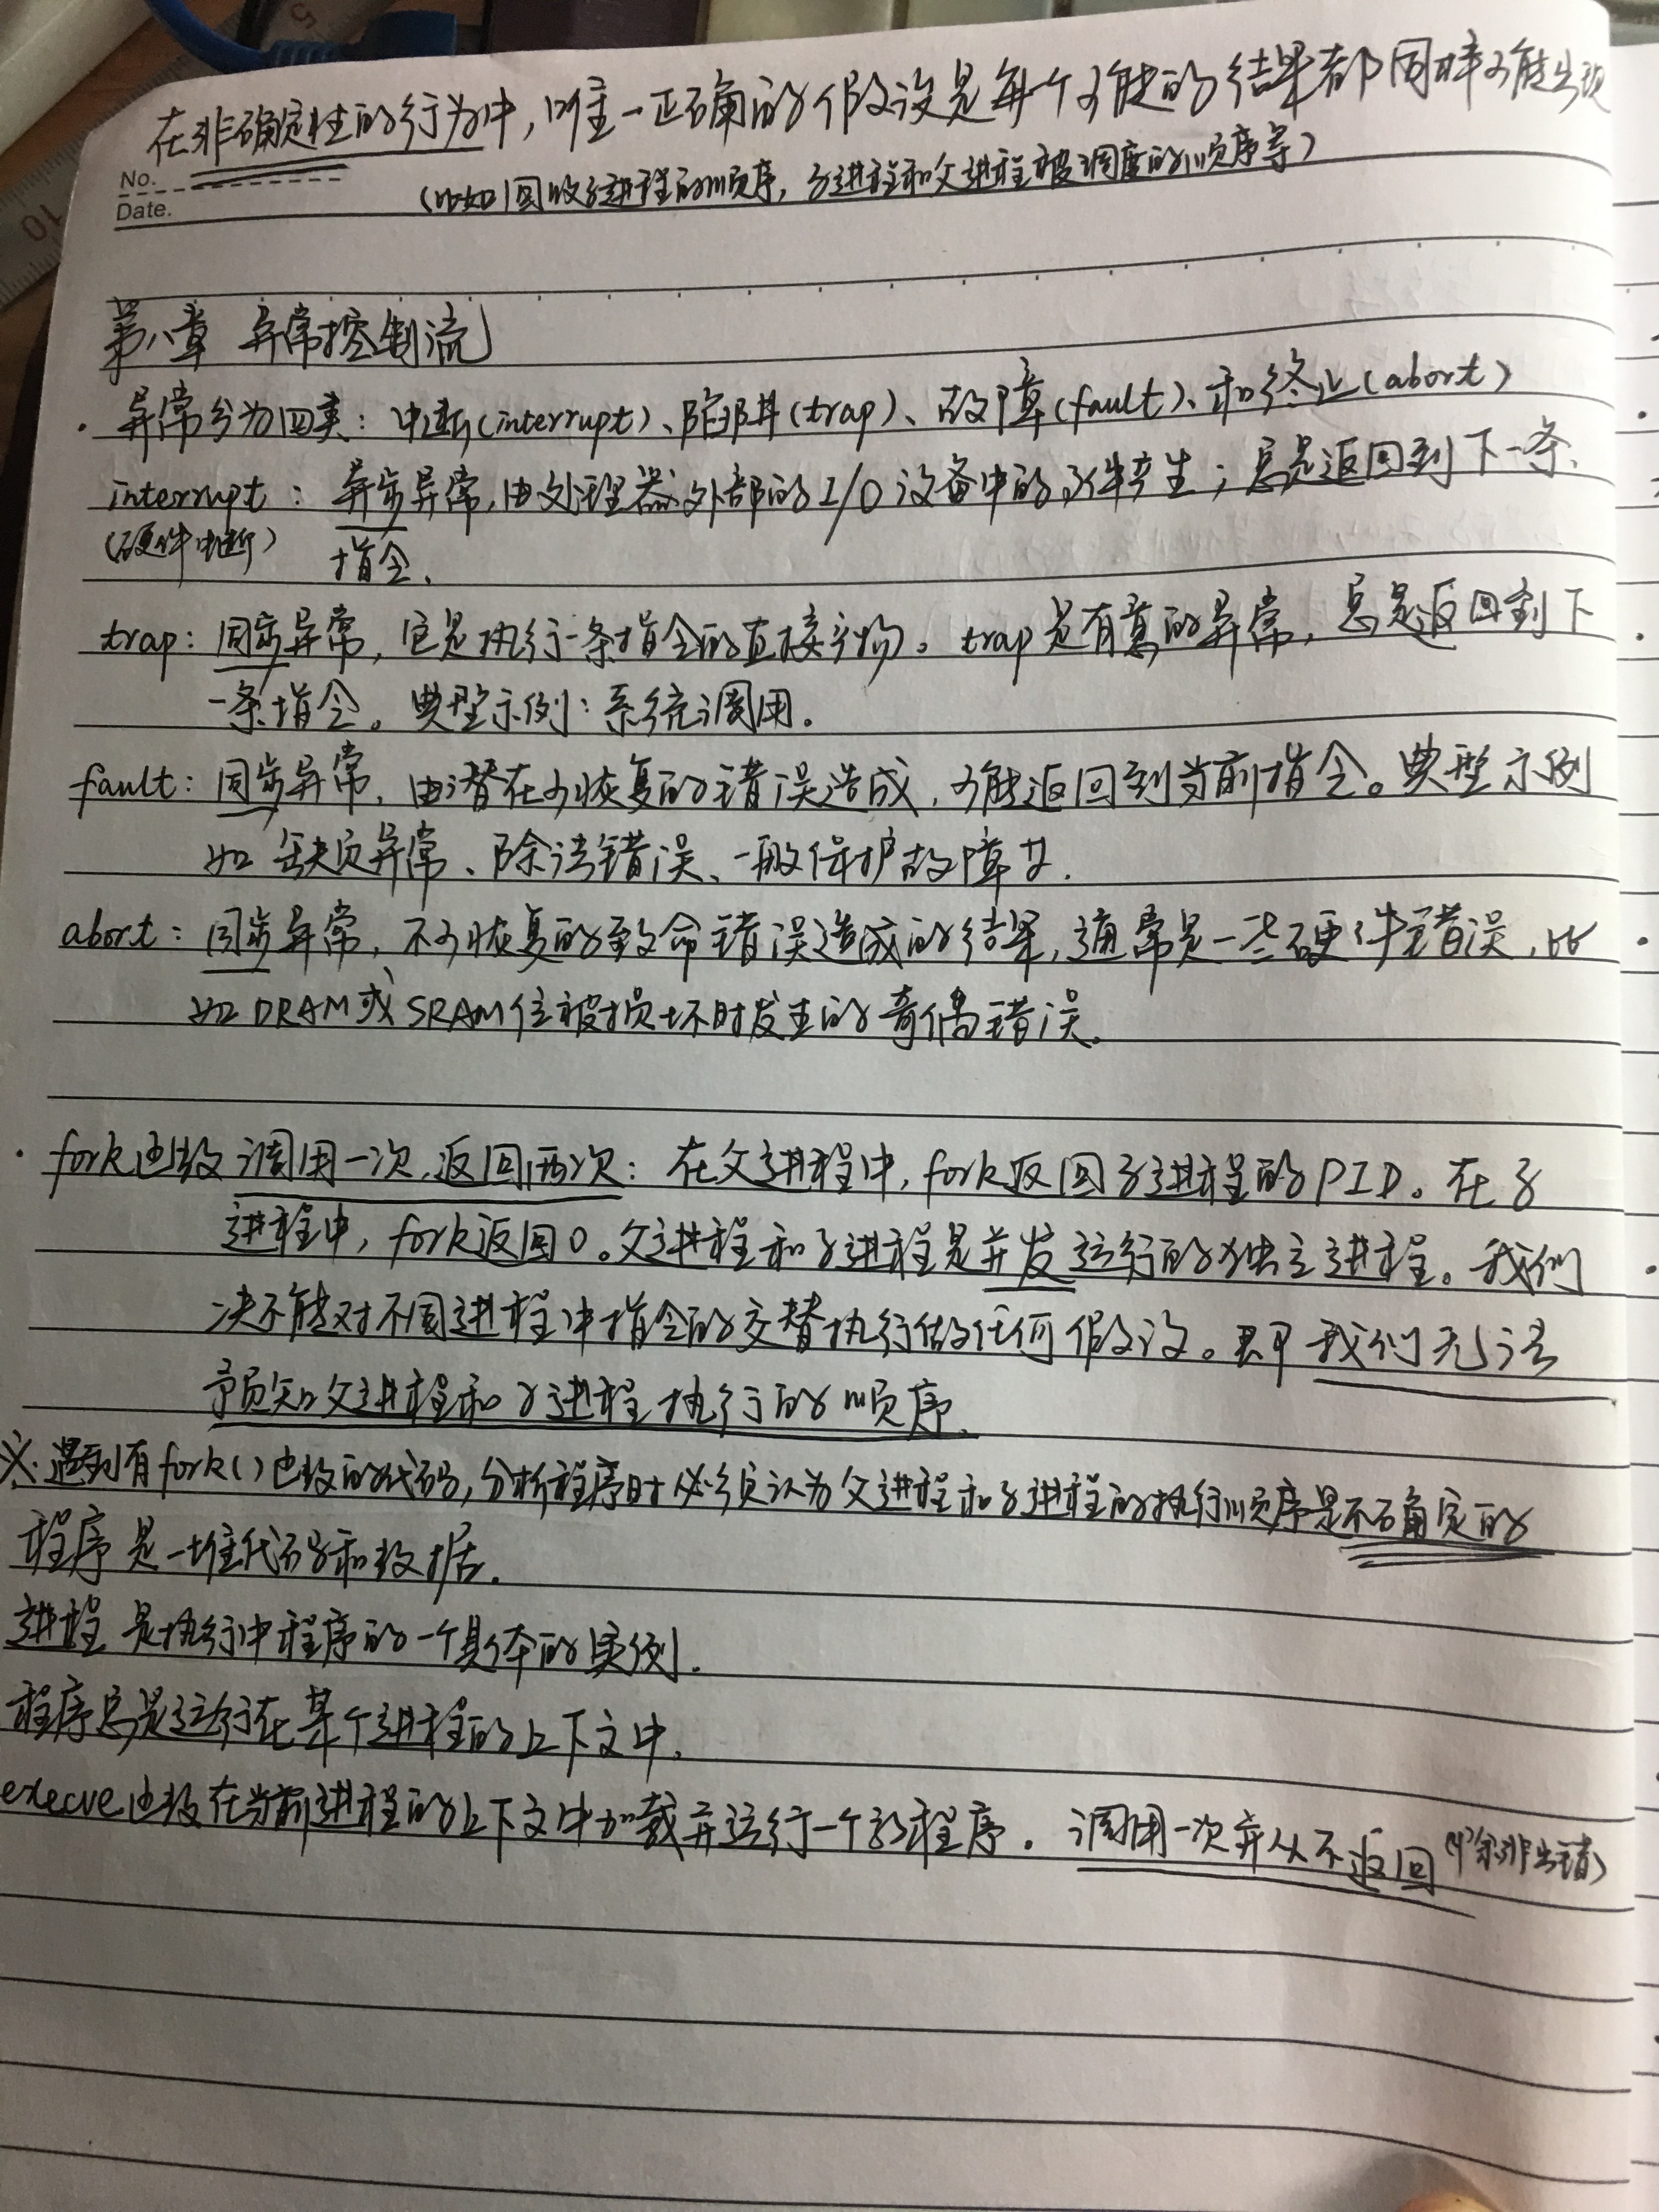 在非确定性的行为中，唯一正确的假设是每个可能的结果都同样可能出现
No.
(比如回收子进程的顺序，子进程和父进程被调度的顺序等)
Date.
第八章 异常控制流
· 异常分为四类：中断(interrupt)、陷阱(trap)、故障(fault)、和终止(abort)
interrupt：异步异常，由处理器外部的I/O设备中的事件产生；总是返回到下一条
(硬件中断) 指令.
trap：同步异常，它是执行一条指令的直接产物。trap是有意的异常，总是返回到下
一条指令。典型示例：系统调用.
fault：同步异常，由潜在可恢复的错误造成，可能返回到当前指令。典型示例
如缺页异常、除法错误、一般保护故障等.
abort：同步异常，不可恢复的致命错误造成的结果，通常是一些硬件错误，比
如DRAM或SRAM位被损坏时发生的奇偶错误。
· fork函数调用一次，返回两次：在父进程中，fork返回子进程的PID。在子
进程中，fork返回0。父进程和子进程是并发运行的独立进程。我们
决不能对不同进程中指令的交替执行做任何假设。即我们无法
预知父进程和子进程执行的顺序.
※.遇到有fork()函数的代码，分析程序时必须认为父进程和子进程的执行顺序是不确定的
程序是一堆代码和数据.
进程是执行中程序的一个具体的实例.
程序总是运行在某个进程的上下文中.
execve函数在当前进程的上下文中加载并运行一个新程序. 调用一次并从不返回(除非出错)
10
5